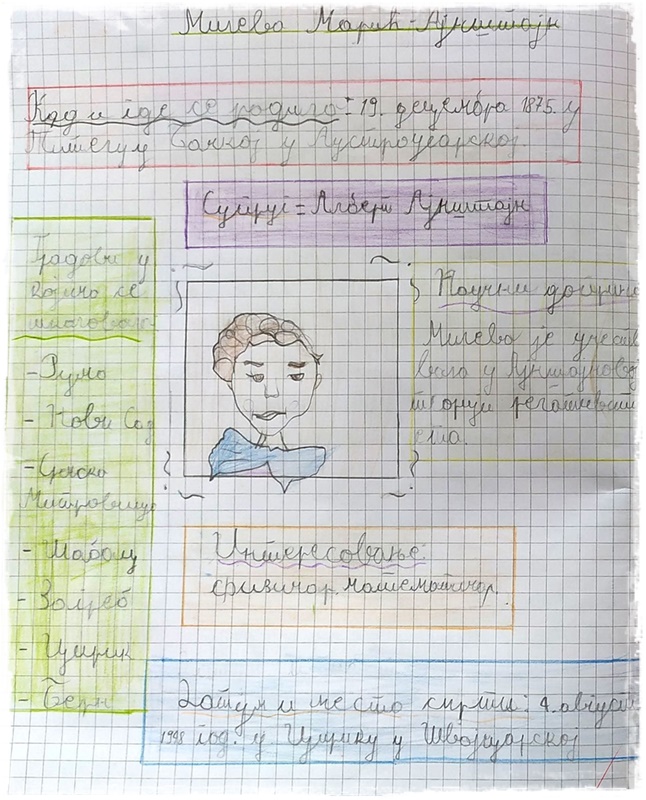 Милева Марић-Ајнштајн
Кад и где се родила: 19. децембра 1875. у
Тителу у Бачкој у Аустроугарској.
Супруг = Алберт Ајнштајн
Градови у
којима се
школовала
- Рума
- Нови Сад
- Сремска
Митровица
- Шабац
- Загреб
- Цирих
- Берн
Научни доприно
Милева је учеств
вала у Ајнштајновој
теорији релативности
Интересовање:
физичар, математичар.
Датум и место смрти: 4. август
1948 год. у Цириху у Швајцарској